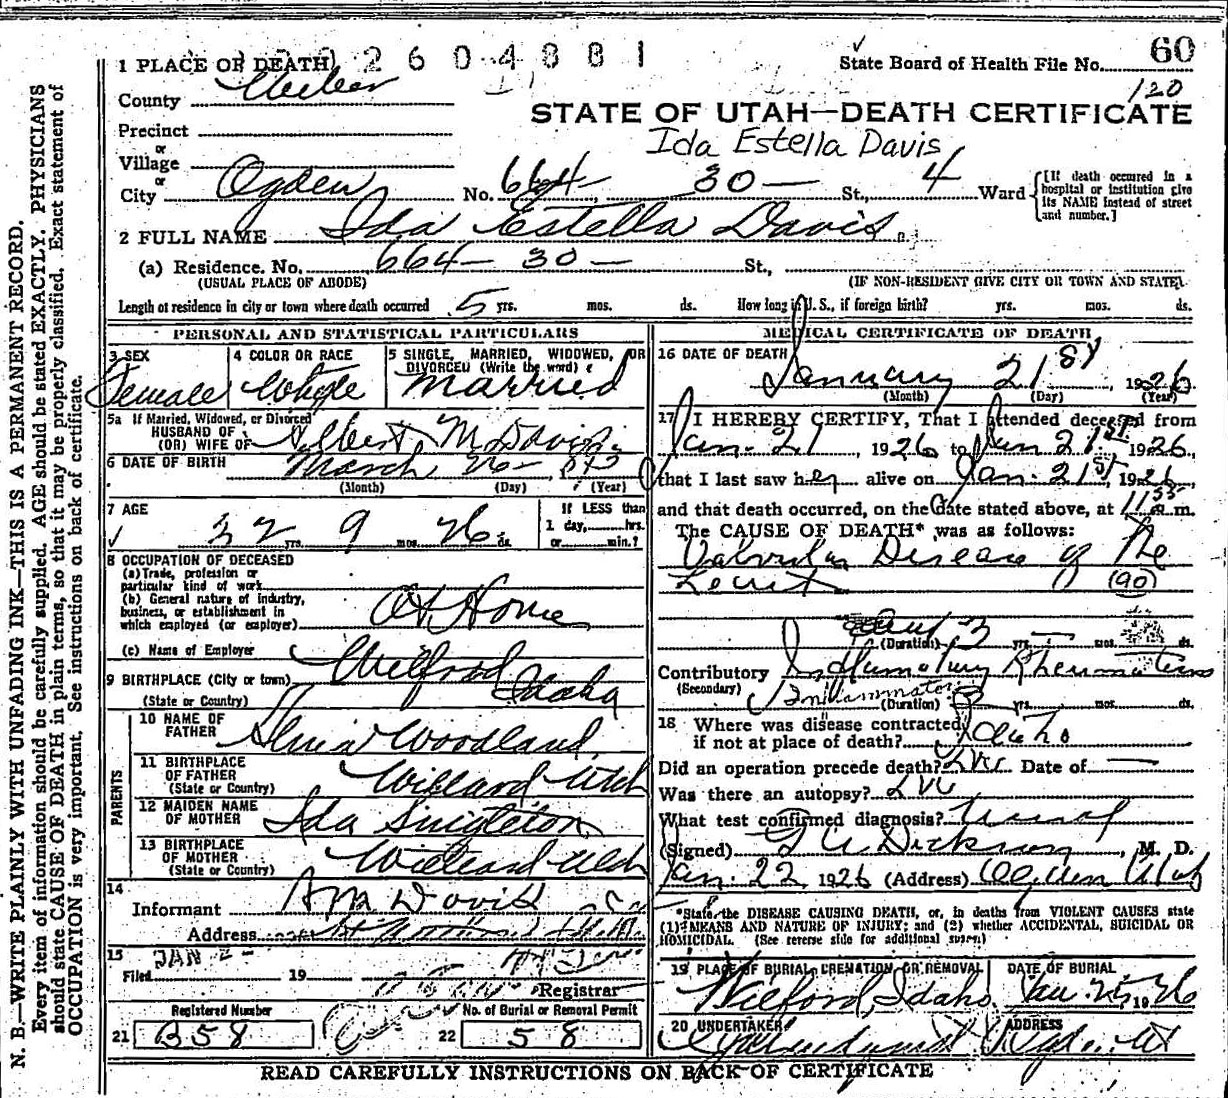 1 PLACE OF DEATH 2604881 State Board of Health File No. 60
County Weber 120
STATE OF UTAH—DEATH CERTIFICATE
Precinct
Ida Estella Davis
or
Village
or
City Ogden No. 664- 30 — St., 4 Ward [If death occured in a hospital or institution give its NAME instead of street and number.]
2 FULL NAME Ida Estella Davis
(a) Residence. No. 664- 30 - St.,
(USUAL PLACE OF ABODE) (IF NON-RESIDENT GIVE CITY OR TOWN AND STATE)
Length of residence in city or town where death occurred 5 yrs. mos. ds. How long in U. S., if foreign birth? yrs. mos. ds.
PERSONAL AND STATISTICAL PARTICULARS
3 SEX
Female
4 COLOR OR RACE
White
5 SINGLE, MARRIED, WIDOWED, OR
DIVORCED (Write the word)
Married
5a If Married, Widowed, or Divorced
HUSBAND OF
(OR) WIFE OF Albert M. Davis
6 DATE OF BIRTH March 26-
(Month) (Day) (Year)
7 AGE
32 yrs. 9 mos. 26 ds.
If LESS than
1 day, hrs.
or min.?
8 OCCUPATION OF DECEASED
(a) Trade, profession or
particular kind of work
(b) General nature of industry,
business, or establishment in
which employed (or employer) At Home
(c) Name of Employer
9 BIRTHPLACE (City or town) Wilford
(State or Country) Idaho
PARENTS
10 NAME OF
FATHER Woodland
11 BIRTHPLACE
OF FATHER
(State or Country) Willard Utah
12 MAIDEN NAME
OF MOTHER Ida Singleton
13 BIRTHPLACE
OF MOTHER
(State or Country) Willard Utah
14
Informant A M Davis
Address
15 JAN 2
Filed 19
Registrar
Registered Number
21 B58
No. of Burial or Removal Permit
22 58
MEDICAL CERTIFICATE OF DEATH
16 DATE OF DEATH
January 21st, 1926
(Month) (Day) (Year)
17 I HEREBY CERTIFY, That I attended deceased from
Jan. 21, 1926 to Jan 21st, 1926,
that I last saw her alive on Jan. 21st, 1926,
and that death occurred, on the date stated above, at 11 m.
The CAUSE OF DEATH* was as follows:
Valvular Disease of the
Heart (90)
3
(Duration) yrs. mos. ds.
Contributory Inflamatory Rheumatism
(Secondary) Inflammatory
(Duration) yrs. mos. ds.
18 Where was disease contracted
if not at place of death? Idaho
Did an operation precede death? No Date of —
Was there an autopsy? No
What test confirmed diagnosis? Usual
(Signed) Dickson, M. D.
Jan. 22 1926 (Address) Ogden Utah
*State the DISEASE CAUSING DEATH, or, in deaths from VIOLENT CAUSES state
(1) MEANS AND NATURE OF INJURY; and (2) whether ACCIDENTAL, SUICIDAL OR
HOMICIDAL. (See reverse side for additional space)
19 PLACE OF BURIAL CREMATION OR REMOVAL
Wilford, Idaho.
DATE OF BURIAL
Jan. 25, 1926
20 UNDERTAKER
ADDRESS
Ogden, Ut
READ CAREFULLY INSTRUCTIONS ON BACK OF CERTIFICATE
N. B.—WRITE PLAINLY WITH UNFADING INK—THIS IS A PERMANENT RECORD.
Every item of information should be carefully supplied. AGE should be stated EXACTLY. PHYSICIANS
should state CAUSE OF DEATH in plain terms, so that it may be properly classified. Exact statement of
OCCUPATION is very important. See instructions on back of certificate.